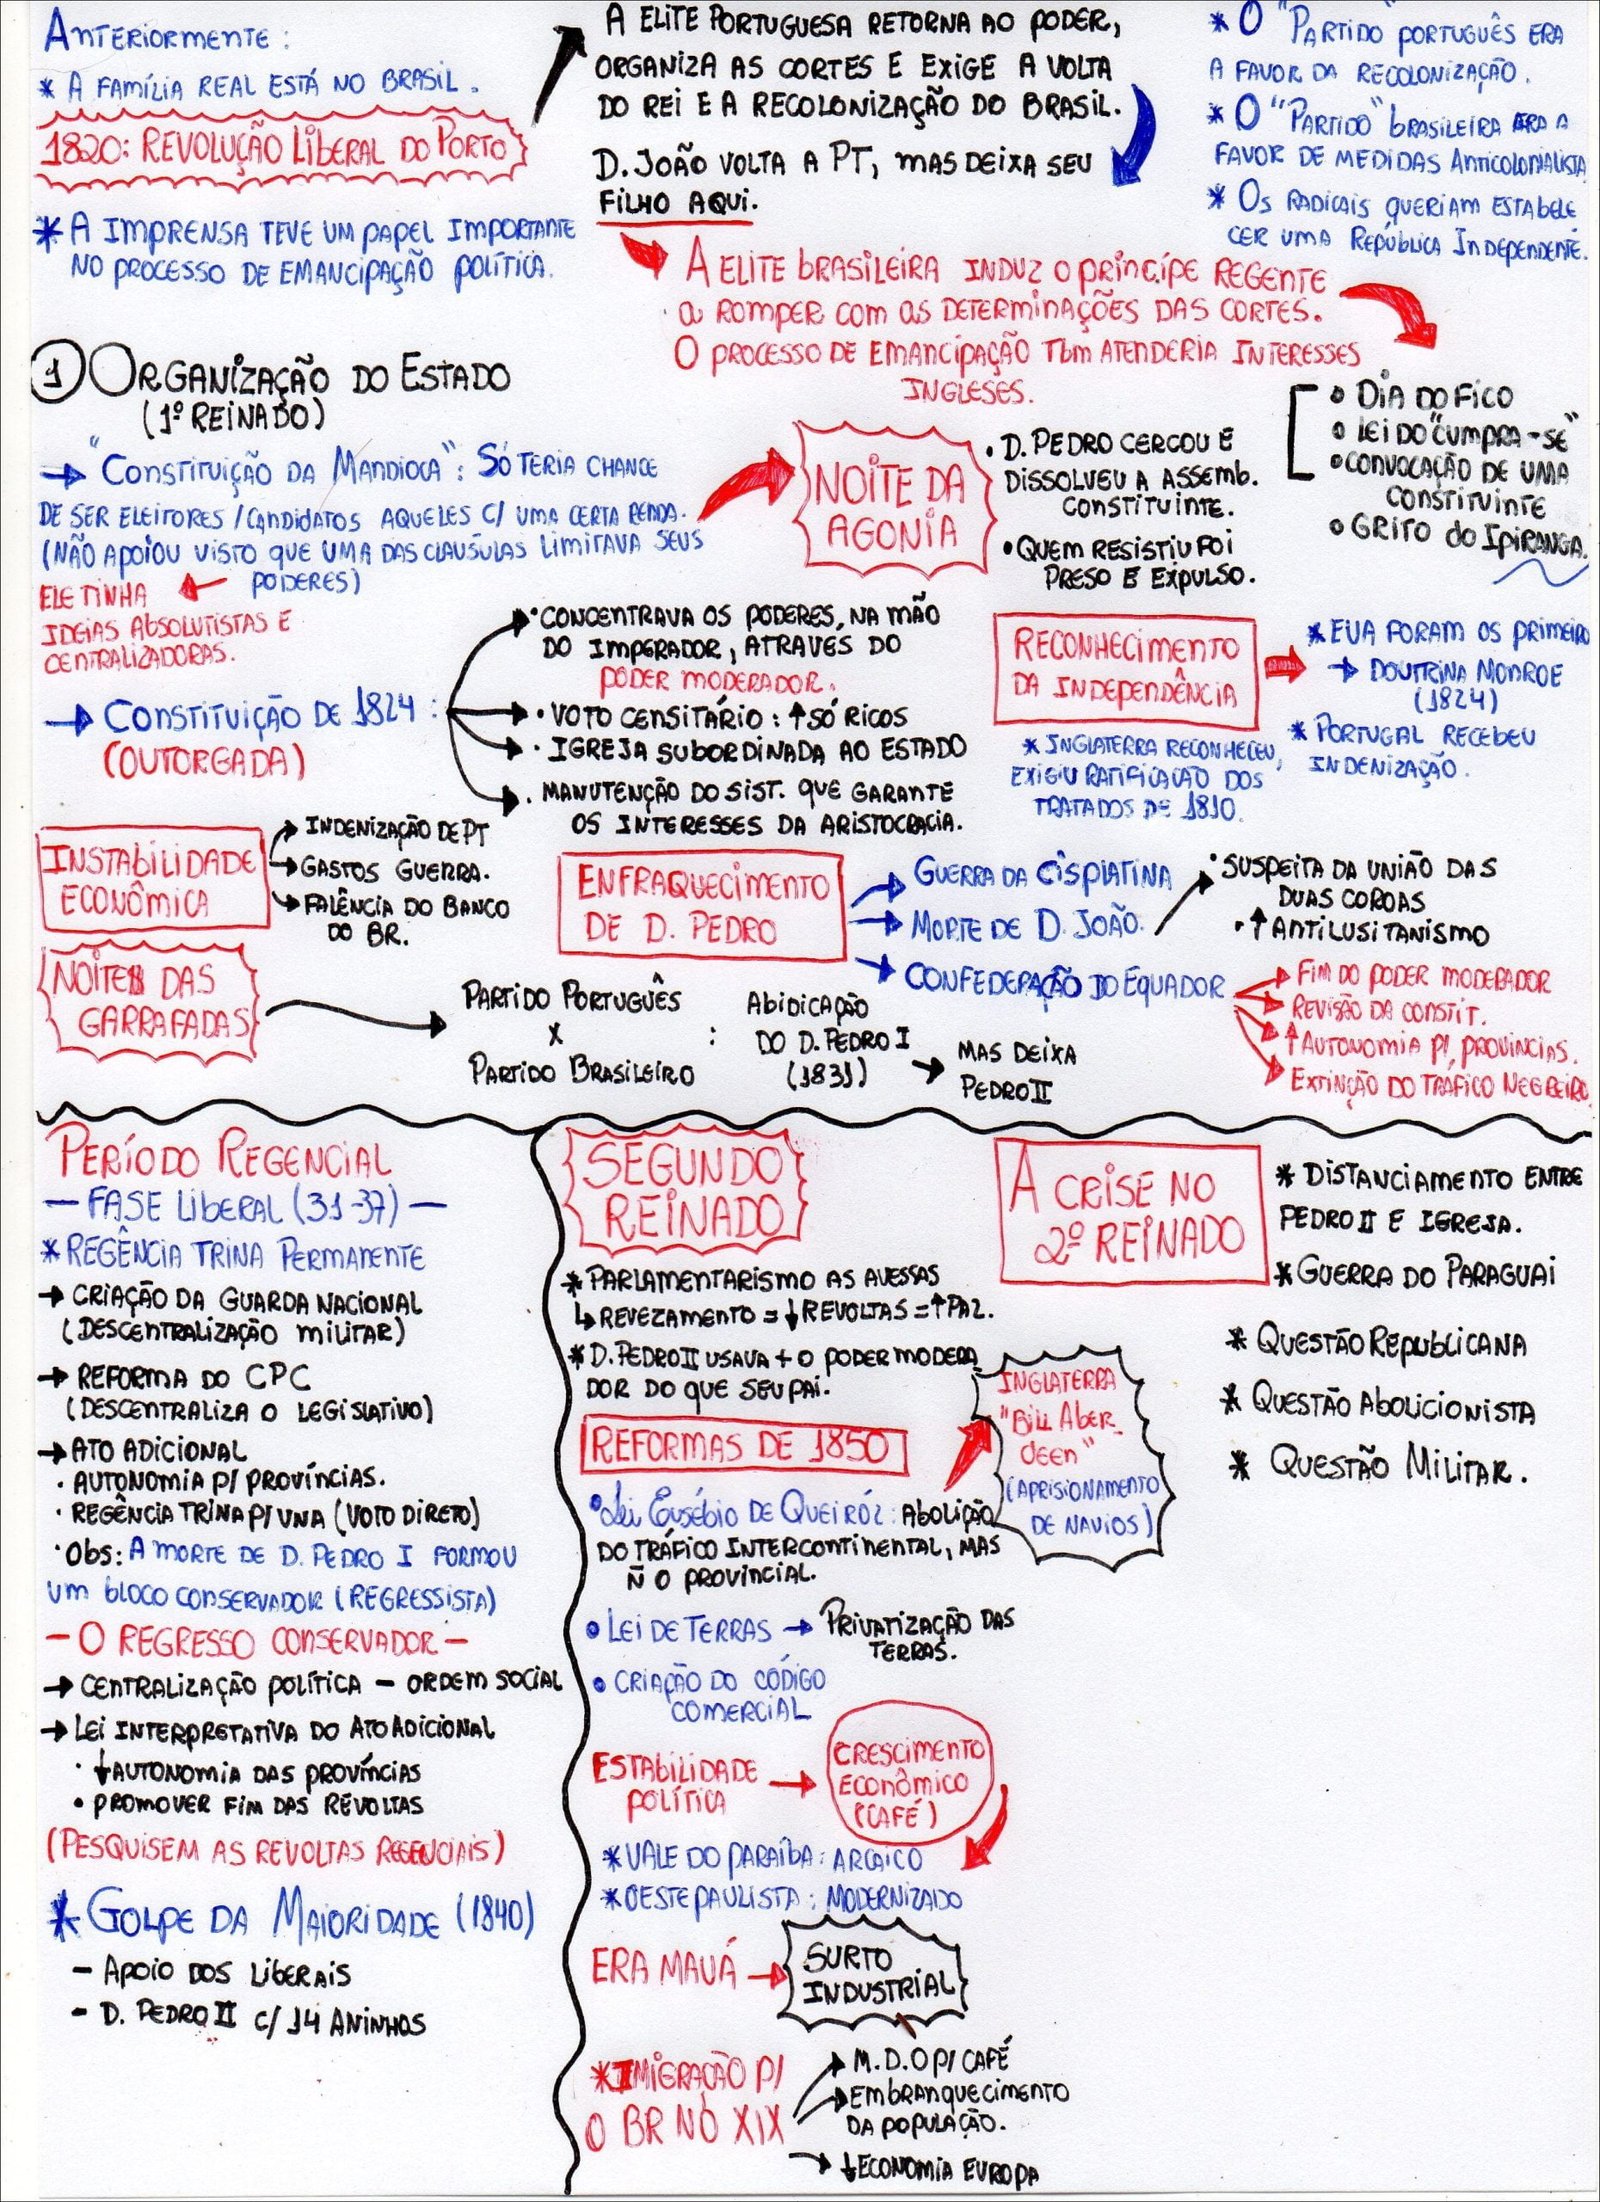 Anteriormente:
* A família real está no Brasil.
1820: Revolução Liberal do Porto
* A imprensa teve um papel importante
no processo de emancipação política.
A elite portuguesa retorna ao poder,
organiza as cortes e exige a volta
do rei e a recolonização do Brasil.
D. João volta a PT, mas deixa seu
filho aqui.
* O "Partido" português era
a favor da recolonização.
* O "Partido" brasileira era a
favor de medidas anticolonialista
* Os radicais queriam estabele
cer uma República Independente.
A elite brasileira induz o príncipe regente
a romper com as determinações das cortes.
O processo de emancipação tbm atenderia interesses
ingleses.
• Dia do Fico
• Lei do "Cumpra-se"
• Convocação de uma
constituinte
• Grito do Ipiranga.
1 Organização do Estado
(1º Reinado)
→ "Constituição da Mandioca": Só teria chance
de ser eleitores/candidatos aqueles c/ uma certa renda.
(Não apoiou visto que uma das clausulas limitava seus
poderes)
Ele tinha
ideias absolutistas e
centralizadoras.
Noite da
Agonia
• D. Pedro cercou e
dissolveu a assemb.
constituinte.
• Quem resistiu foi
preso e expulso.
→ Constituição de 1824:
(Outorgada)
• Concentrava os poderes, na mão
do imperador, através do
poder moderador.
• Voto censitário: ↑ só ricos
• Igreja subordinada ao Estado
• Manutenção do sist. que garante
os interesses da aristocracia.
Reconhecimento
da Independência
* EUA foram os primeiro
→ Doutrina Monroe
(1824)
* Portugal recebeu
indenização.
* Inglaterra reconheceu,
exigiu ratificação dos
tratados de 1810.
Instabilidade
Econômica
→ Indenização de PT
→ Gastos guerra.
→ Falência do Banco
do BR.
Enfraquecimento
de D. Pedro
→ Guerra da Cisplatina
→ Morte de D. João.
→ Confederação do Equador
• Suspeita da união das
duas coroas
• ↑ Antilusitanismo
→ Fim do poder moderador
→ Revisão da constit.
→ ↑ Autonomia p/ províncias.
→ Extinção do tráfico negreiro.
Noite das
Garrafadas
Partido Português
x
Partido Brasileiro
:
Abidicação
do D. Pedro I
(1831)
→ Mas deixa
Pedro II
Período Regencial
— Fase Liberal (31-37) —
* Regência Trina Permanente
→ Criação da Guarda Nacional
(Descentralização militar)
→ Reforma do CPC
(Descentraliza o legislativo)
→ Ato Adicional
• Autonomia p/ províncias.
• Regência Trina p/ Una (voto direto)
• Obs: A morte de D. Pedro I formou
um bloco conservador (regressista)
— O Regresso Conservador —
→ Centralização política — ordem social
→ Lei interpretativa do Ato Adicional
• ↓ Autonomia das províncias
• Promover fim das revoltas
(Pesquisem as revoltas regenciais)
* Golpe da Maioridade (1840)
- Apoio dos liberais
- D. Pedro II c/ 14 aninhos
Segundo
Reinado
* Parlamentarismo as avessas
↳ Revezamento = ↓ revoltas = ↑ paz.
* D. Pedro II usava + o poder modera
dor do que seu pai.
Reformas de 1850
• Lei Eusébio de Queiróz: Abolição
do tráfico intercontinental, mas
ñ o provincial.
Inglaterra
"Bill Aber
deen"
(Aprisionamento
de navios)
• Lei de Terras → Privatização das
terras.
• Criação do Código
Comercial
Estabilidade
política
→ Crescimento
Econômico
(café)
* Vale do Paraíba: Arcaico
* Oeste Paulista: Modernizado
Era Mauá → Surto
Industrial
* Imigração p/
o BR no XIX
→ M.D.O p/ café
→ Embranquecimento
da população.
→ ↓ Economia Europa
A crise no
2º Reinado
* Distanciamento entre
Pedro II e igreja.
* Guerra do Paraguai
* Questão Republicana
* Questão Abolicionista
* Questão Militar.